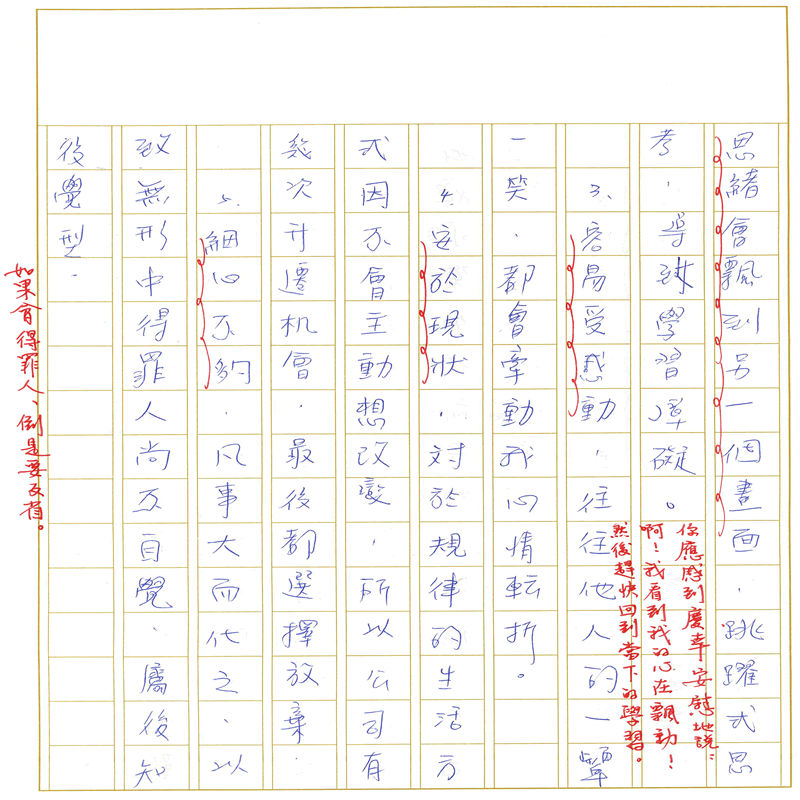 思緒會飄到另一個畫面．跳躍式思
考，導致學習障礙。
你應感到慶幸安慰地說：
啊！我看到我的心在飄動！
然後趕快回到當下的學習。
3、容易受感動，往往他人的一顰
一笑．都會牽動我心情転折。
4.安於現状．対於規律的生活方
式因不會主動想改變，所以公司有
幾次升遷机會最後都選擇放棄．
5、細心不夠．凡事大而化之、以
致無形中得罪人尚不自覺．屬後知
後覺型．
如果有得罪人、倒是要反省。